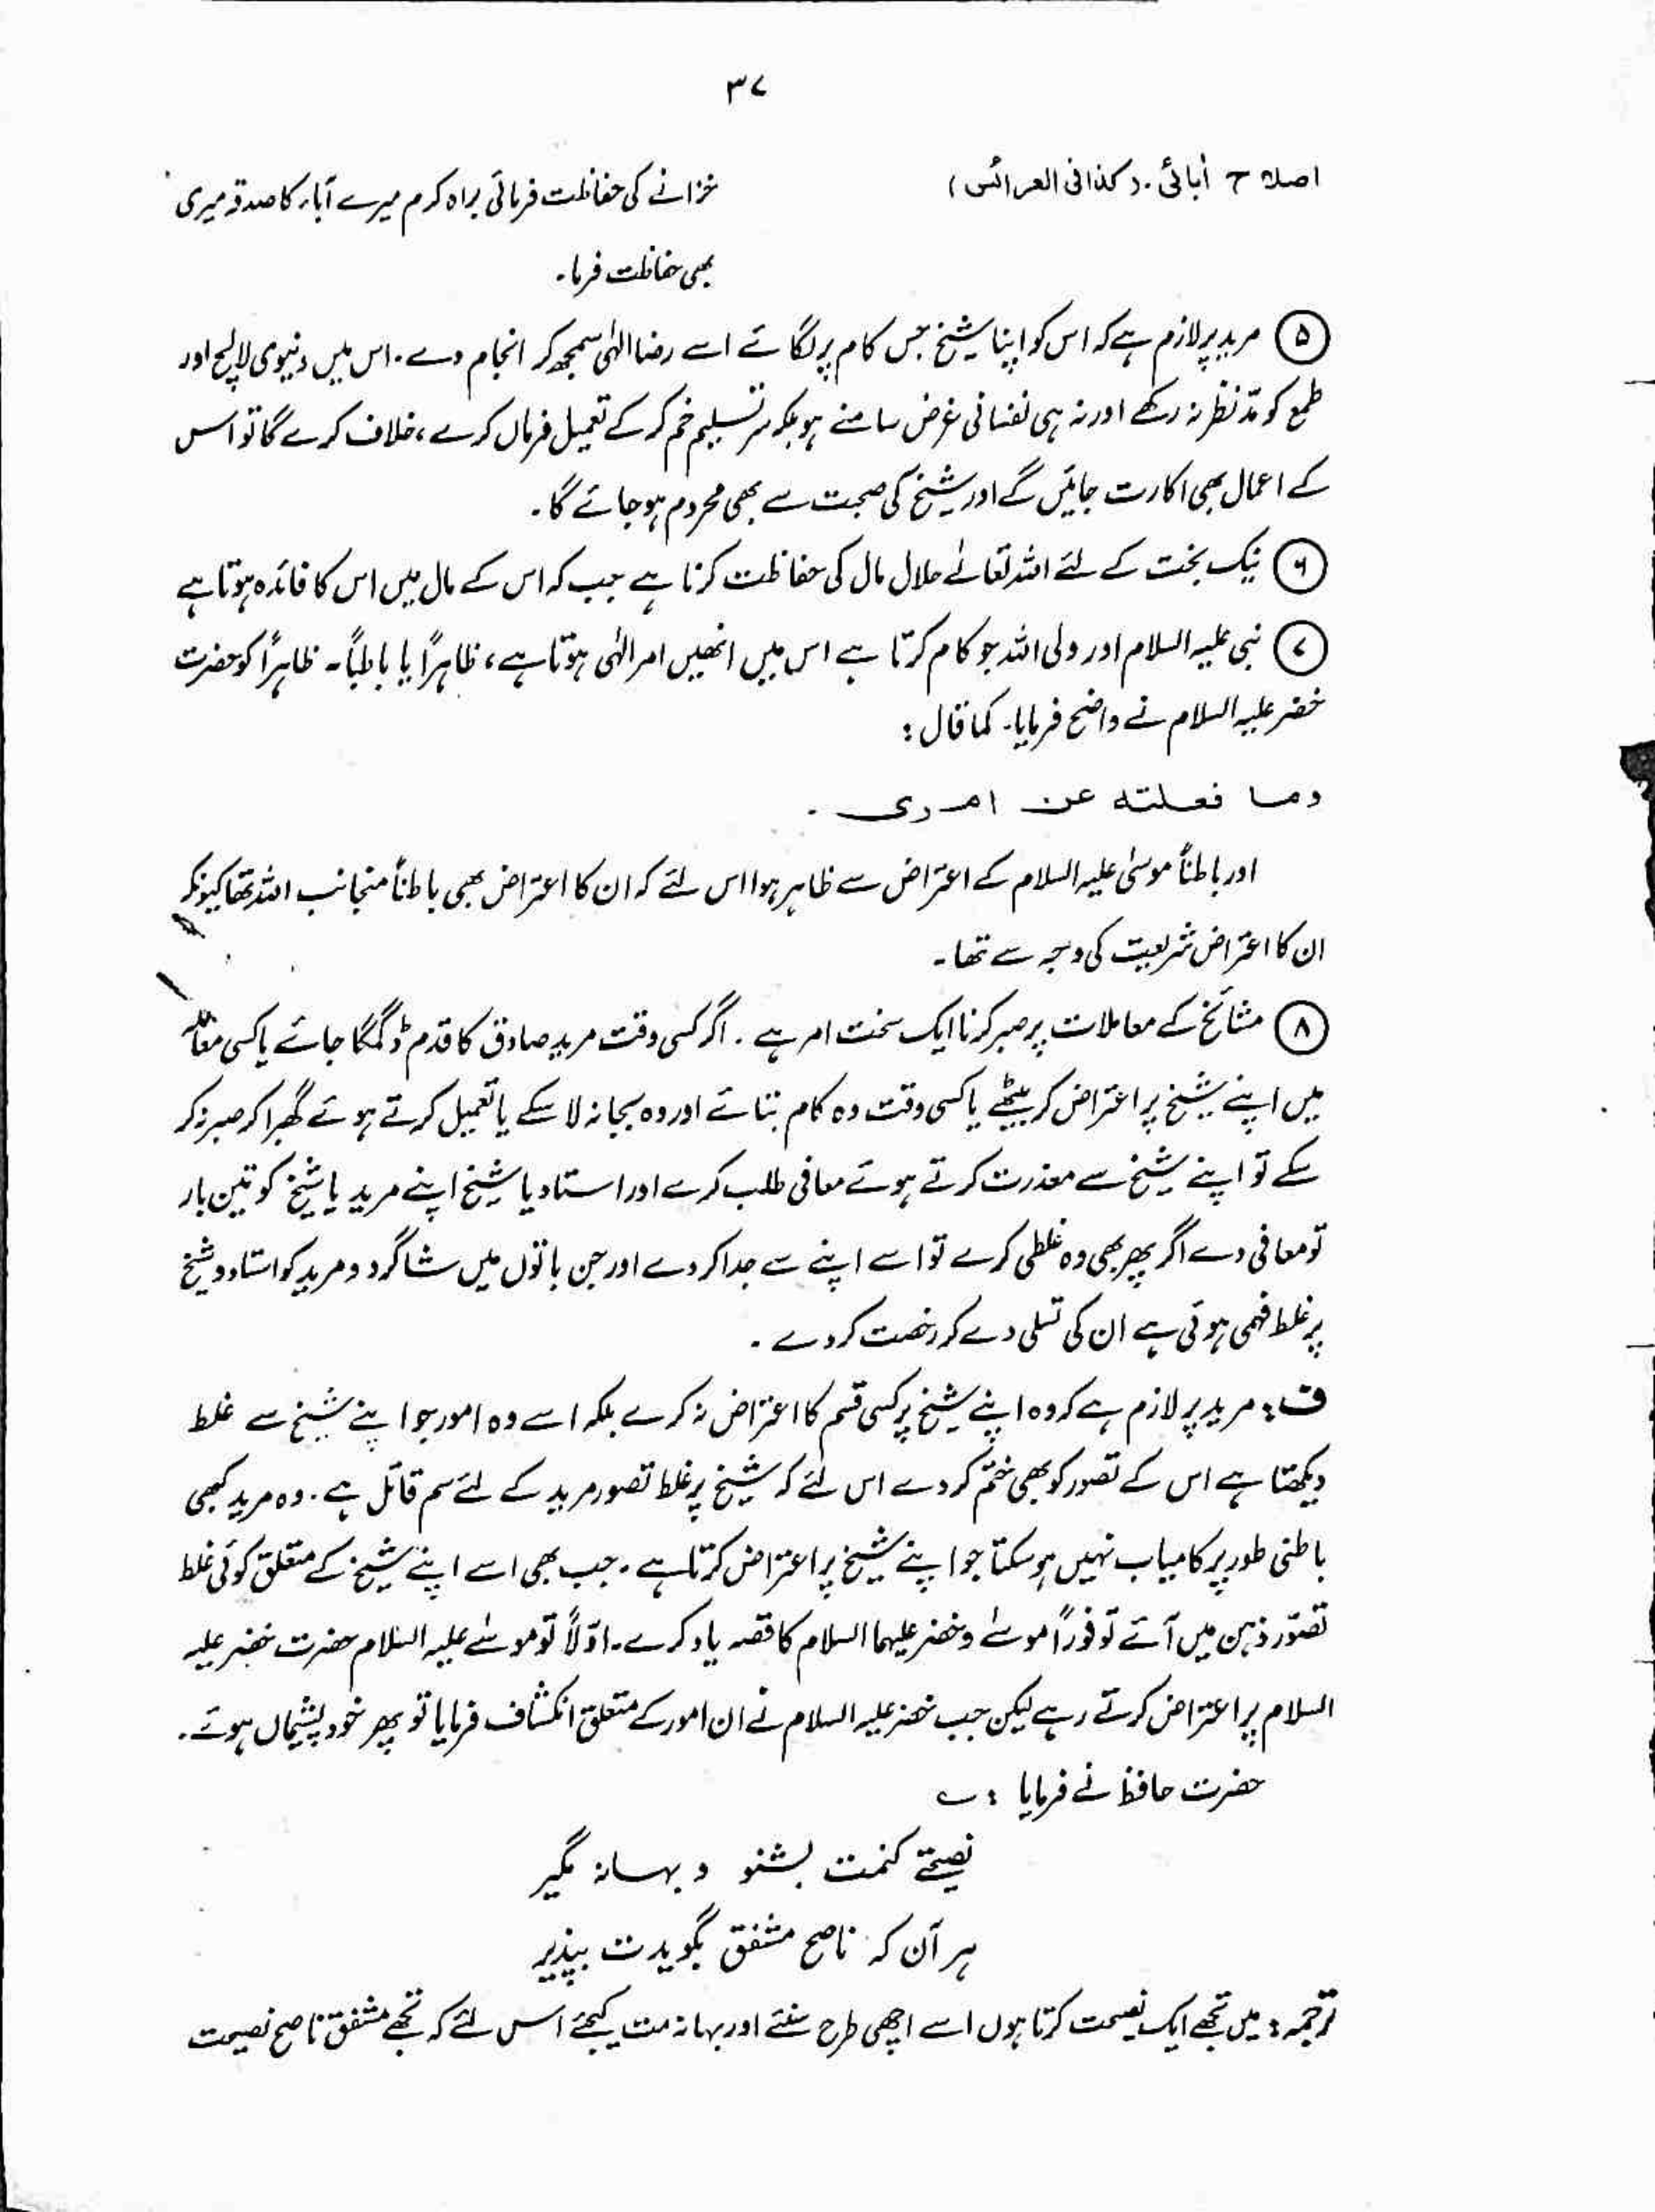 ۳۷
اصلاح أبائی . (کذا فی العرائس)
خزانے کی حفاظت فرمائی براہ کرم میرے آباء کا صدقہ میری
بھی حفاظت فرما۔
۵ مرید پر لازم ہے کہ اس کو اپنا شیخ جس کام پر لگائے اسے رضا الٰہی سمجھ کر انجام دے۔ اس میں دنیوی لالچ اور
طمع کو مدّنظر نہ رکھے اور نہ ہی نفسانی غرض سامنے ہو بلکہ سر تسلیم خم کر کے تعمیل فرماں کرے، خلاف کرے گا تو اس
کے اعمال بھی اکارت جائیں گے اور شیخ کی صحبت سے بھی محروم ہو جائے گا۔
۶ نیک بخت کے لئے اللہ تعالےٰ حلال مال کی حفاظت کرتا ہے جب کہ اس کے مال میں اس کا فائدہ ہوتا ہے
۷ نبی علیہ السلام اور ولی اللہ جو کام کرتا ہے اس میں انھیں امر الٰہی ہوتا ہے، ظاہراً یا باطناً۔ ظاہراً کو حضرت
خضر علیہ السلام نے واضح فرمایا۔ کما قال :
وما فعلته عن امری ۔
اور باطناً موسیٰ علیہ السلام کے اعتراض سے ظاہر ہوا اس لئے کہ ان کا اعتراض بھی باطناً منجانب اللہ تھا کیونکہ
ان کا اعتراض شریعت کی وجہ سے تھا۔
۸ مشائخ کے معاملات پر صبر کرنا ایک سخت امر ہے ۔ اگر کسی وقت مرید صادق کا قدم ڈگمگا جائے یا کسی معاملہ
میں اپنے شیخ پر اعتراض کر بیٹھے یا کسی وقت وہ کام بتائے اور وہ بجا نہ لا سکے یا تعمیل کرتے ہوئے گھبرا کر صبر نہ کر
سکے تو اپنے شیخ سے معذرت کرتے ہوئے معافی طلب کرے اور استاد یا شیخ اپنے مرید یا شیخ کو تین بار
تو معافی دے اگر پھر بھی وہ غلطی کرے تو اسے اپنے سے جدا کر دے اور جن باتوں میں شاگرد و مرید کو استاد و شیخ
پر غلط فہمی ہوئی ہے ان کی تسلی دے کر رخصت کر دے ۔
ف : مرید پر لازم ہے کہ وہ اپنے شیخ پر کسی قسم کا اعتراض نہ کرے بلکہ اسے وہ امور جو اپنے شیخ سے غلط
دیکھتا ہے اس کے تصور کو بھی ختم کر دے اس لئے کہ شیخ پر غلط تصور مرید کے لئے سم قاتل ہے ۔ وہ مرید کبھی
باطنی طور پر کامیاب نہیں ہو سکتا جو اپنے شیخ پر اعتراض کرتا ہے ۔ جب بھی اسے اپنے شیخ کے متعلق کوئی غلط
تصوّر ذہن میں آئے تو فوراً موسےٰ و خضر علیہما السلام کا قصہ یاد کرے ۔ اوّلاً تو موسےٰ علیہ السلام حضرت خضر علیہ
السلام پر اعتراض کرتے رہے لیکن جب خضر علیہ السلام نے ان امور کے متعلق انکشاف فرمایا تو پھر خود پشیماں ہوئے۔
حضرت حافظ نے فرمایا : ؎
نصیحتے کنمت بشنو و بہانہ مگیر
ہر آن کہ ناصح مشفق بگویدت بپذیر
ترجمہ : میں تجھے ایک نصیحت کرتا ہوں اسے اچھی طرح سنئے اور بہانہ مت کیجئے اس لئے کہ تجھے مشفق ناصح نصیحت